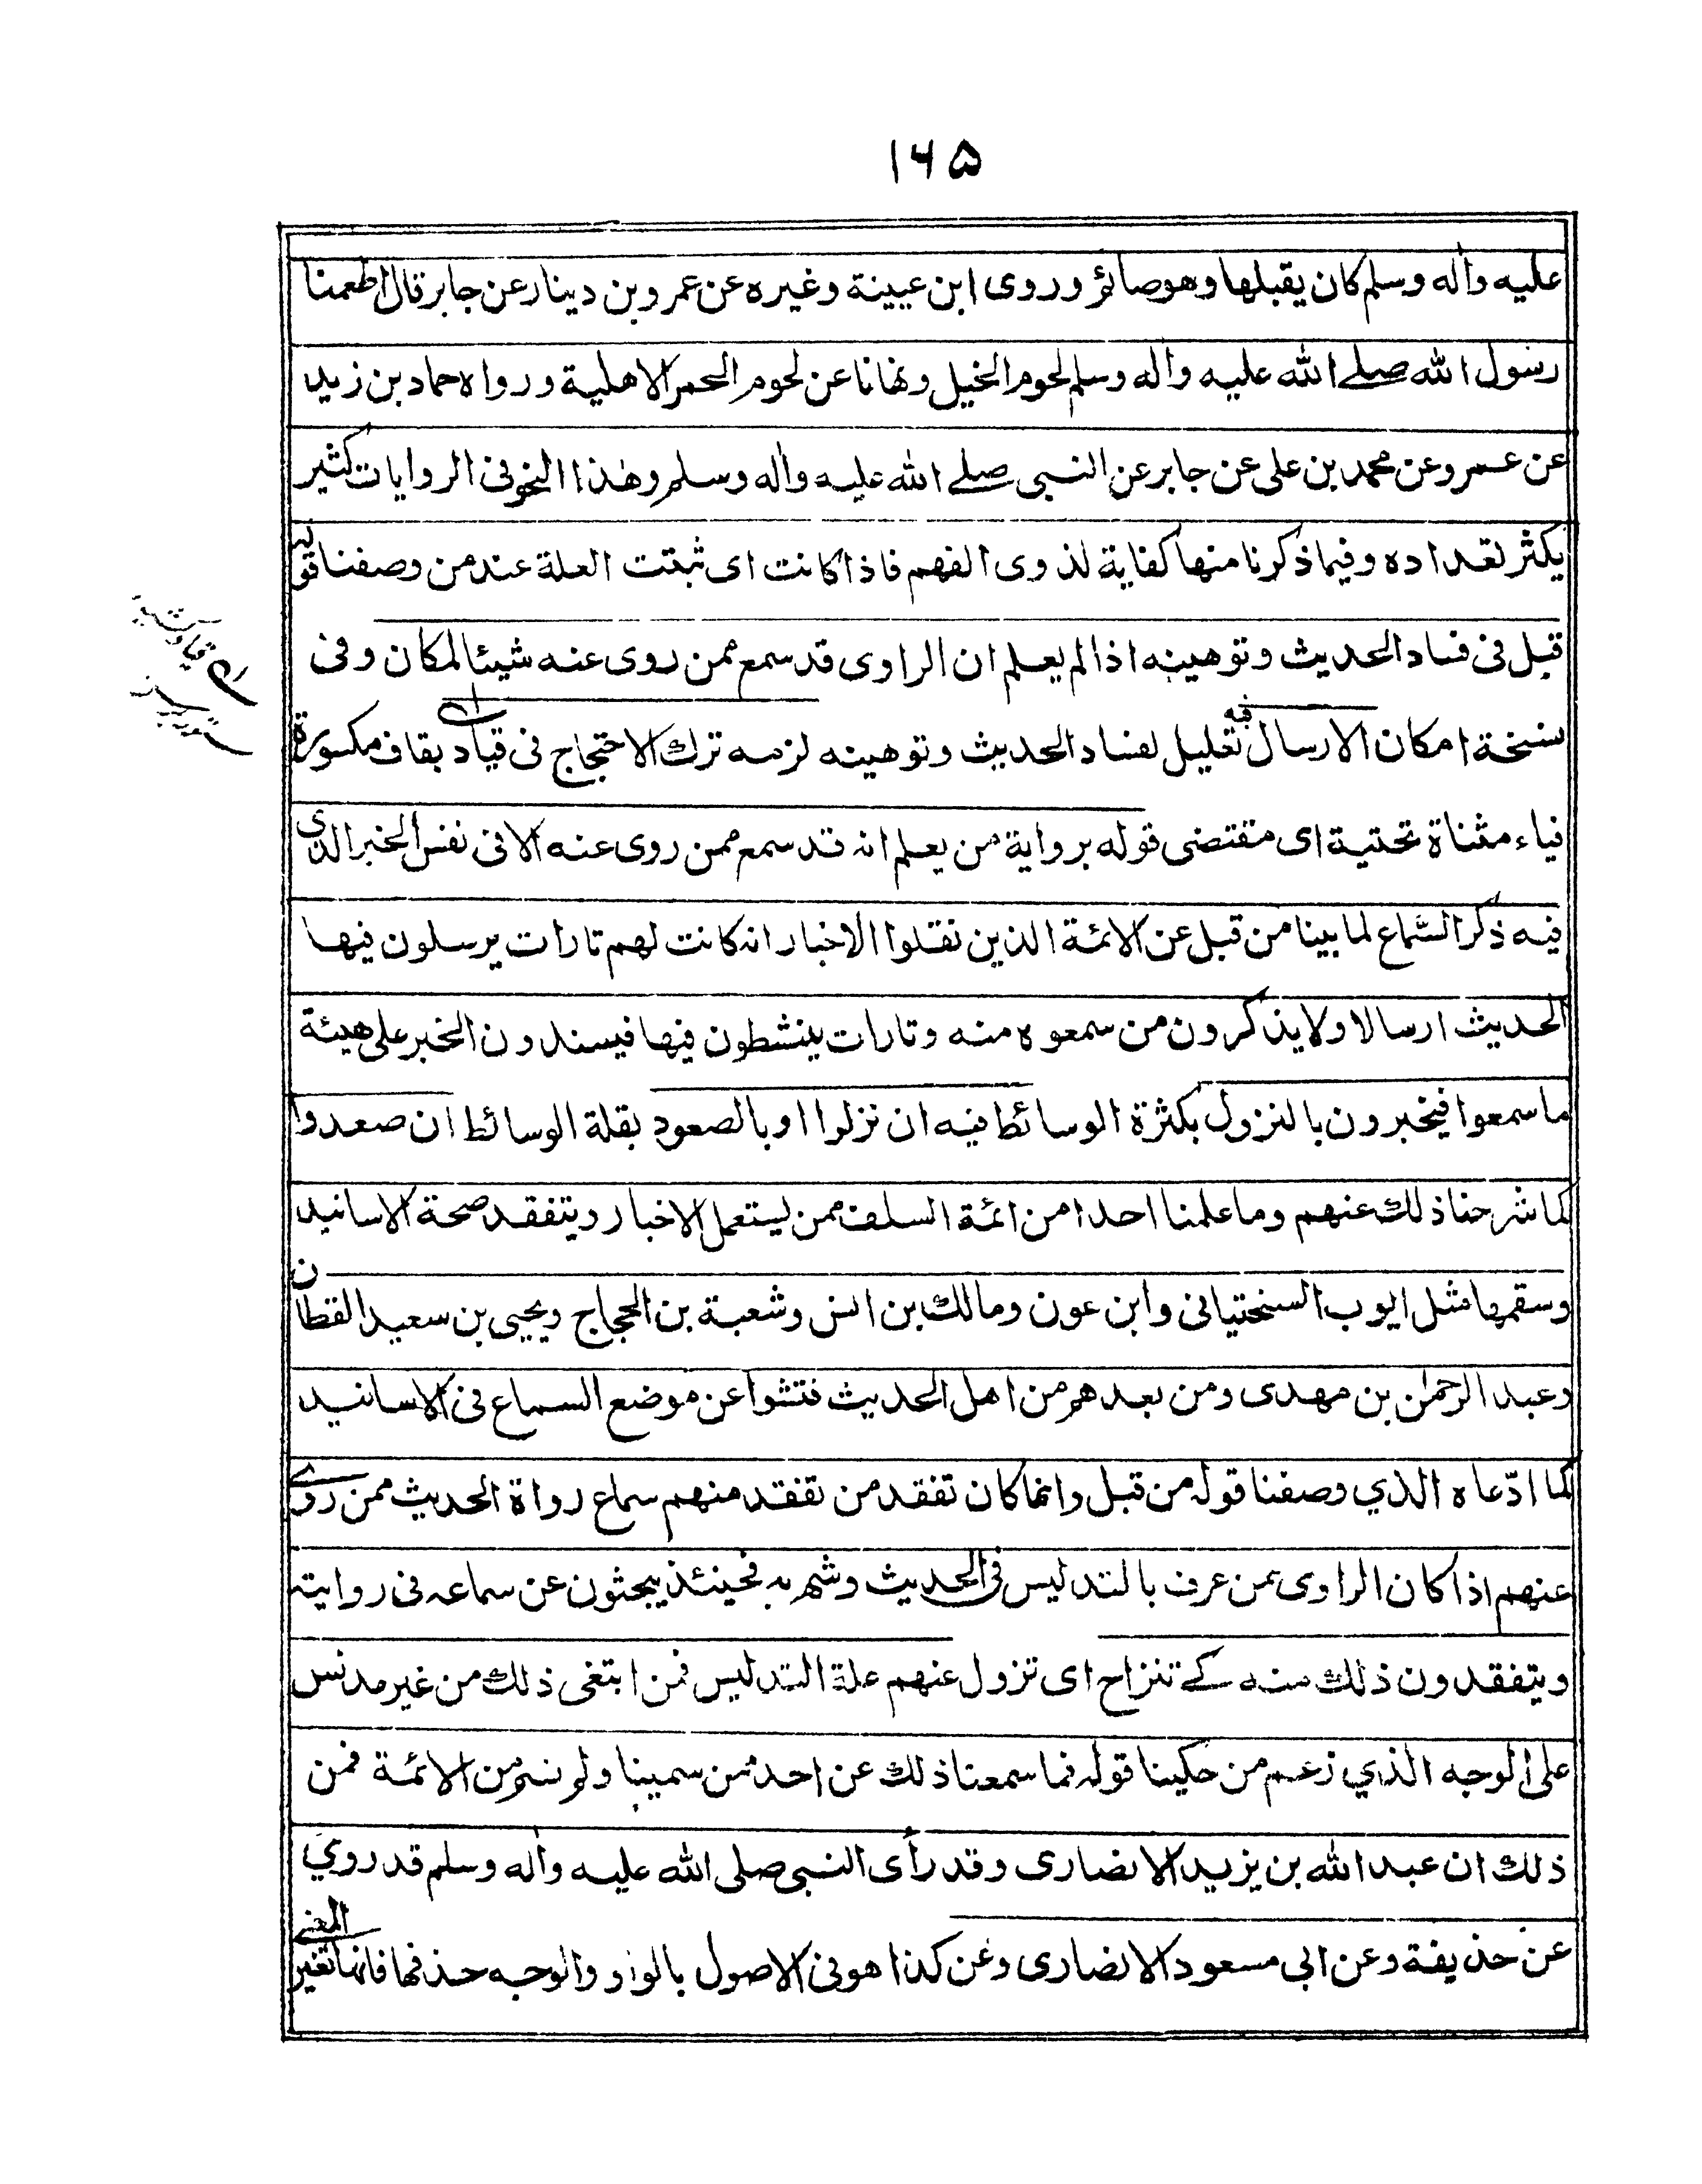 ۱۶۵
عليه واٰله وسلم كان يقبلها وهو صائم وروى ابن عيينة وغيره عن عمرو بن دينار عن جابر قال اطعمنا
رسول الله صلے الله عليه واٰله وسلم لحوم الخيل ونهانا عن لحوم الحمر الاهلية ورواه حماد بن زيد
عن عمرو عن محمد بن على عن جابر عن النبى صلے الله عليه واٰله وسلم وهٰذا النحو فى الروايات كثير
يكثر تعداده وفيما ذكرنا منها كفاية لذوى الفهم فاذا كانت اى ثبتت العلة عند من وصفنا قوله
قبل فى فساد الحديث وتوهينه اذا لم يعلم ان الراوى قد سمع ممن روى عنه شيئا لمكان وفى
نسخة امكان الارسال فيه تعليل لفساد الحديث وتوهينه لزمه ترك الاحتجاج فى قياد بقاف مكسورة
فياء مثناة تحتية اى مقتضى قوله برواية من يعلم انه قد سمع ممن روى عنه الا فى نفس الخبر الذى
فيه ذكر السماع لما بينا من قبل عن الائمة الذين نقلوا الاخبار انه كانت لهم تارات يرسلون فيها
الحديث ارسالا ولا يذكرون من سمعوه منه وتارات ينشطون فيها فيسندون الخبر على هيئة
ما سمعوا فيخبرون بالنزول بكثرة الوسائط فيه ان نزلوا او بالصعود بقلة الوسائط ان صعدوا
كما شرحنا ذلك عنهم وما علمنا احدا من ائمة السلف ممن يستعمل الاخبار ويتفقد صحة الاسانيد
وسقمها مثل ايوب السختيانى وابن عون ومالك بن انس وشعبة بن الحجاج ويحيى بن سعيد القطان
وعبد الرحمٰن بن مهدى ومن بعدهم من اهل الحديث فتشوا عن موضع السماع فى الاسانيد
كما ادّعاه الذي وصفنا قوله من قبل وانما كان تفقد من تفقد منهم سماع رواة الحديث ممن روى
عنهم اذا كان الراوى ممن عرف بالتدليس فى الحديث وشهر به فحينئذ يبحثون عن سماعه فى روايته
ويتفقدون ذلك منه كے تنزاح اى تزول عنهم علة التدليس فمن ابتغى ذلك من غير مدلس
على الوجه الذي زعم من حكينا قوله فما سمعنا ذلك عن احد ممن سمينا ولم نسم من الائمة فمن
ذلك ان عبد الله بن يزيد الانصارى وقد رأى النبى صلى الله عليه واٰله وسلم قد روي
عن حذيفة وعن ابى مسعود الانصارى وعن كذا هو فى الاصول بالواو والوجه حذفها فانها تغير المعنى